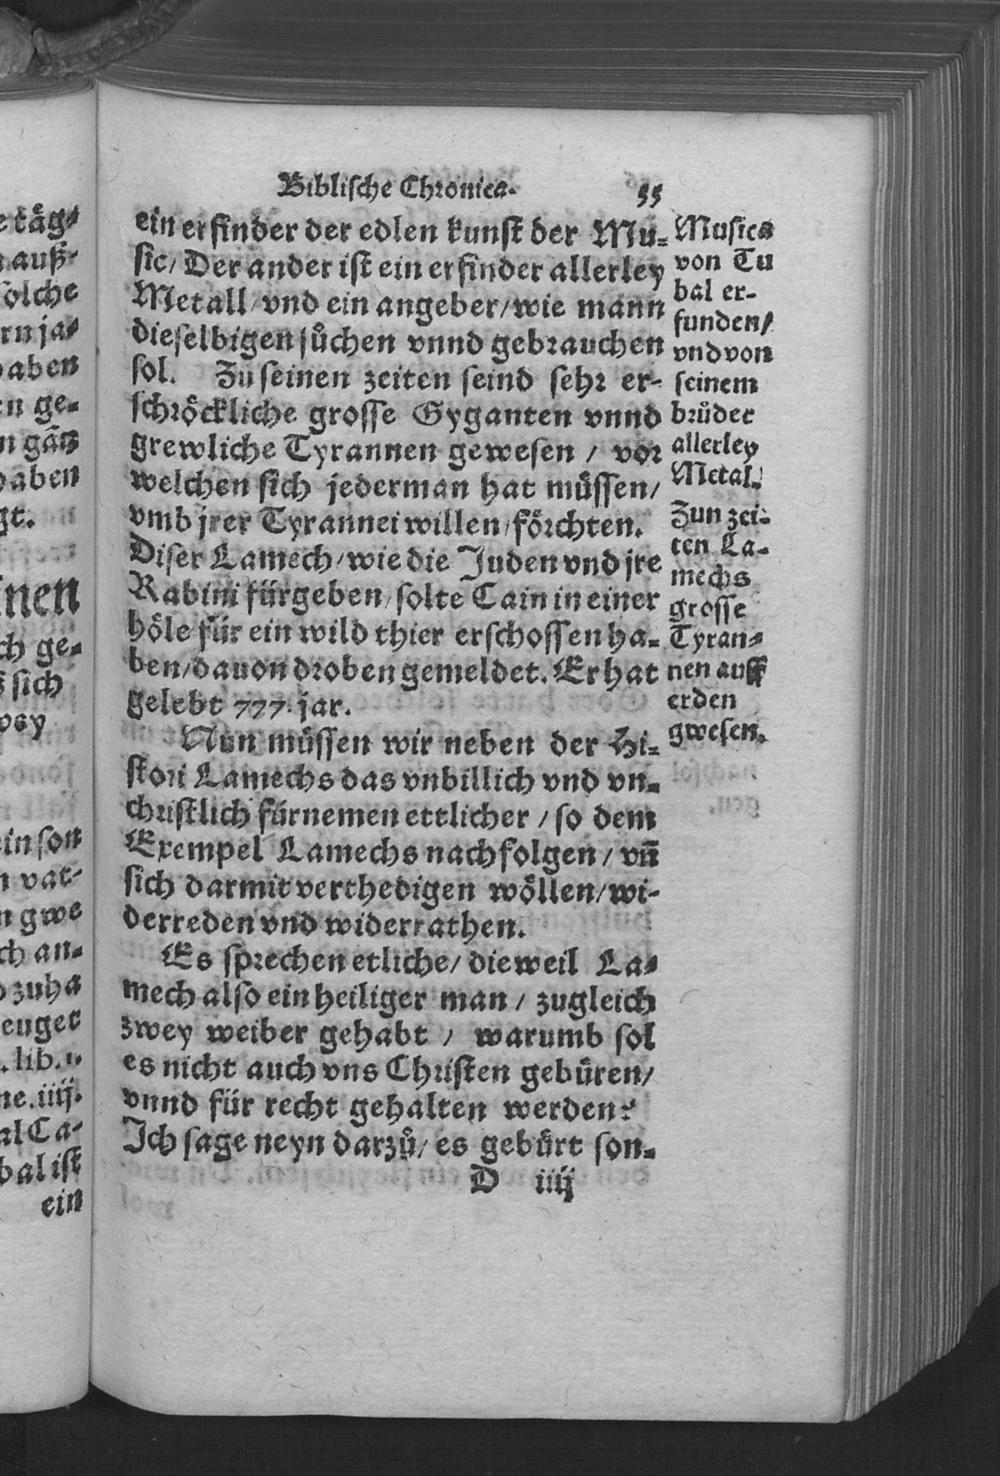 Biblische Chronica. 55
ein erfinder der edlen kunst der Mu-
sic/ Der ander ist ein erfinder allerley
Metall/ vnd ein angeber/ wie mann
dieselbigen sůchen vnnd gebrauchen
sol. Zů seinen zeiten seind sehr er-
schröckliche grosse Gyganten vnnd
grewliche Tyrannen gewesen / vor
welchen sich jederman hat müssen/
vmb jrer Tyrannei willen/ förchten.
Diser Lamech/ wie die Juden vnd jre
Rabini fürgeben/ solte Cain in einer
höle für ein wild thier erschossen ha-
ben/ dauon droben gemeldet. Er hat
gelebt 777. jar.
Nun müssen wir neben der Hi-
stori Lamechs das vnbillich vnd vn-
christlich fürnemen ettlicher / so dem
Exempel Lamechs nachfolgen / vñ
sich darmit verthedigen wöllen/ wi-
derreden vnd widerrathen.
Es sprechen etliche/ dieweil La-
mech also ein heiliger man / zugleich
zwey weiber gehabt / warumb sol
es nicht auch vns Christen gebüren/
vnnd für recht gehalten werden?
Ich sage neyn darzů/ es gebürt son-
D iiij
Musica
von Tu
bal er-
funden/
vnd von
seinem
brüder
allerley
Metal.
Zun zei-
ten La-
mechs
grosse
Tyran-
nen auff
erden
gwesen.
täg-
auß-
solche
ja-
ge-
gãtz
gt.
ch ge-
sich
ein son
vat-
gwe
ch an-
zuha
euget
lib. 1.
ne. iiij.
al Ca-
bal ist
ein